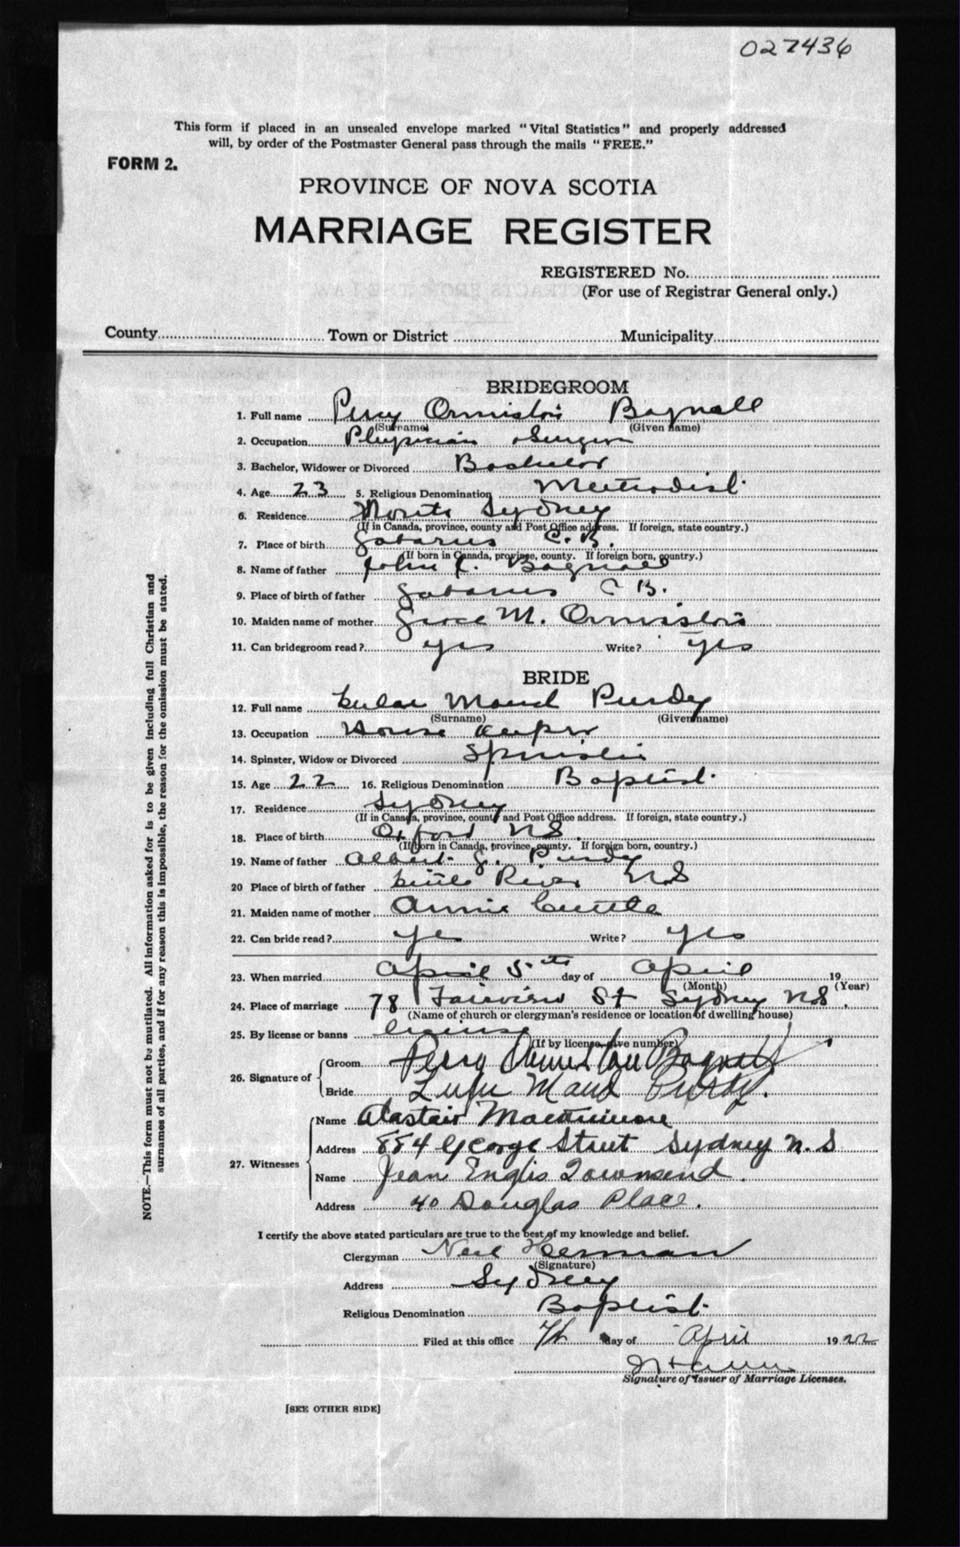 027436
This form if placed in an unsealed envelope marked "Vital Statistics" and properly addressed
will, by order of the Postmaster General pass through the mails "FREE."
FORM 2.
PROVINCE OF NOVA SCOTIA
MARRIAGE REGISTER
REGISTERED No.
(For use of Registrar General only.)
County Town or District Municipality
BRIDEGROOM
1. Full name Percy Ormiston Bagnall
(Surname) (Given name)
2. Occupation Physician Surgeon
3. Bachelor, Widower or Divorced Bachelor
4. Age 23 5. Religious Denomination Methodist
6. Residence North Sydney
(If in Canada, province, county and Post Office address. If foreign, state country.)
7. Place of birth Gabarus C. B.
(If born in Canada, province, county. If foreign born, country.)
8. Name of father John Bagnall
9. Place of birth of father Gabarus C B.
10. Maiden name of mother Grace M. Ormiston
11. Can bridegroom read? yes Write? yes
BRIDE
12. Full name Lulu Maud Purdy
(Surname) (Given name)
13. Occupation House keeper
14. Spinster, Widow or Divorced Spinster
15. Age 22 16. Religious Denomination Baptist
17. Residence Sydney
(If in Canada, province, county and Post Office address. If foreign, state country.)
18. Place of birth Oxford N.S.
(If born in Canada, province, county. If foreign born, country.)
19. Name of father Albert Purdy
20 Place of birth of father Little River N.S
21. Maiden name of mother Annie
22. Can bride read? yes Write? yes
23. When married April 5th day of April 19
(Month) (Year)
24. Place of marriage 78 Fairview St Sydney N.S.
(Name of church or clergyman's residence or location of dwelling house)
25. By license or banns License
(If by license, give number)
26. Signature of Groom Percy Ormiston Bagnall
Bride Lulu Maud Purdy.
27. Witnesses Name Alastair
Address 884 George Street Sydney N.S
Name Jean Englis Townsend.
Address 40 Douglas Place.
I certify the above stated particulars are true to the best of my knowledge and belief.
Clergyman Neil Herman
(Signature)
Address Sydney
Religious Denomination Baptist
Filed at this office day of April 1922
Signature of Issuer of Marriage Licenses.
[SEE OTHER SIDE]
NOTE.—This form must not be mutilated. All information asked for is to be given including full Christian and
surnames of all parties, and if for any reason this is impossible, the reason for the omission must be stated.